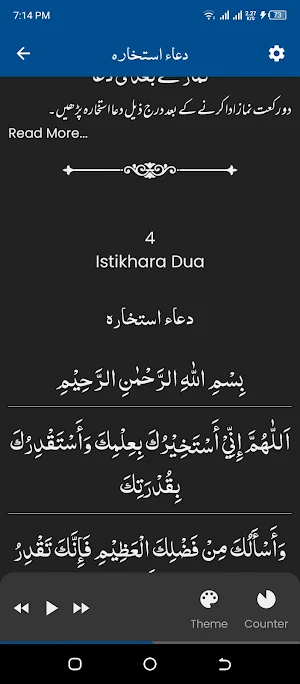 7:14 PM
2.27
K/s
73
دعاء استخارہ
نماز کے بعد کی دعا
دو رکعت نماز ادا کرنے کے بعد درج ذیل دعا استخارہ پڑھیں۔
Read More...
4
Istikhara Dua
دعاء استخارہ
بِسْمِ اللهِ الرَّحْمٰنِ الرَّحِيْمِ
اَللّٰهُمَّ إِنِّيْ أَسْتَخِيْرُكَ بِعِلْمِكَ وَأَسْتَقْدِرُكَ
بِقُدْرَتِكَ
وَأَسْأَلُكَ مِنْ فَضْلِكَ الْعَظِيْمِ فَإِنَّكَ تَقْدِرُ
Theme
Counter